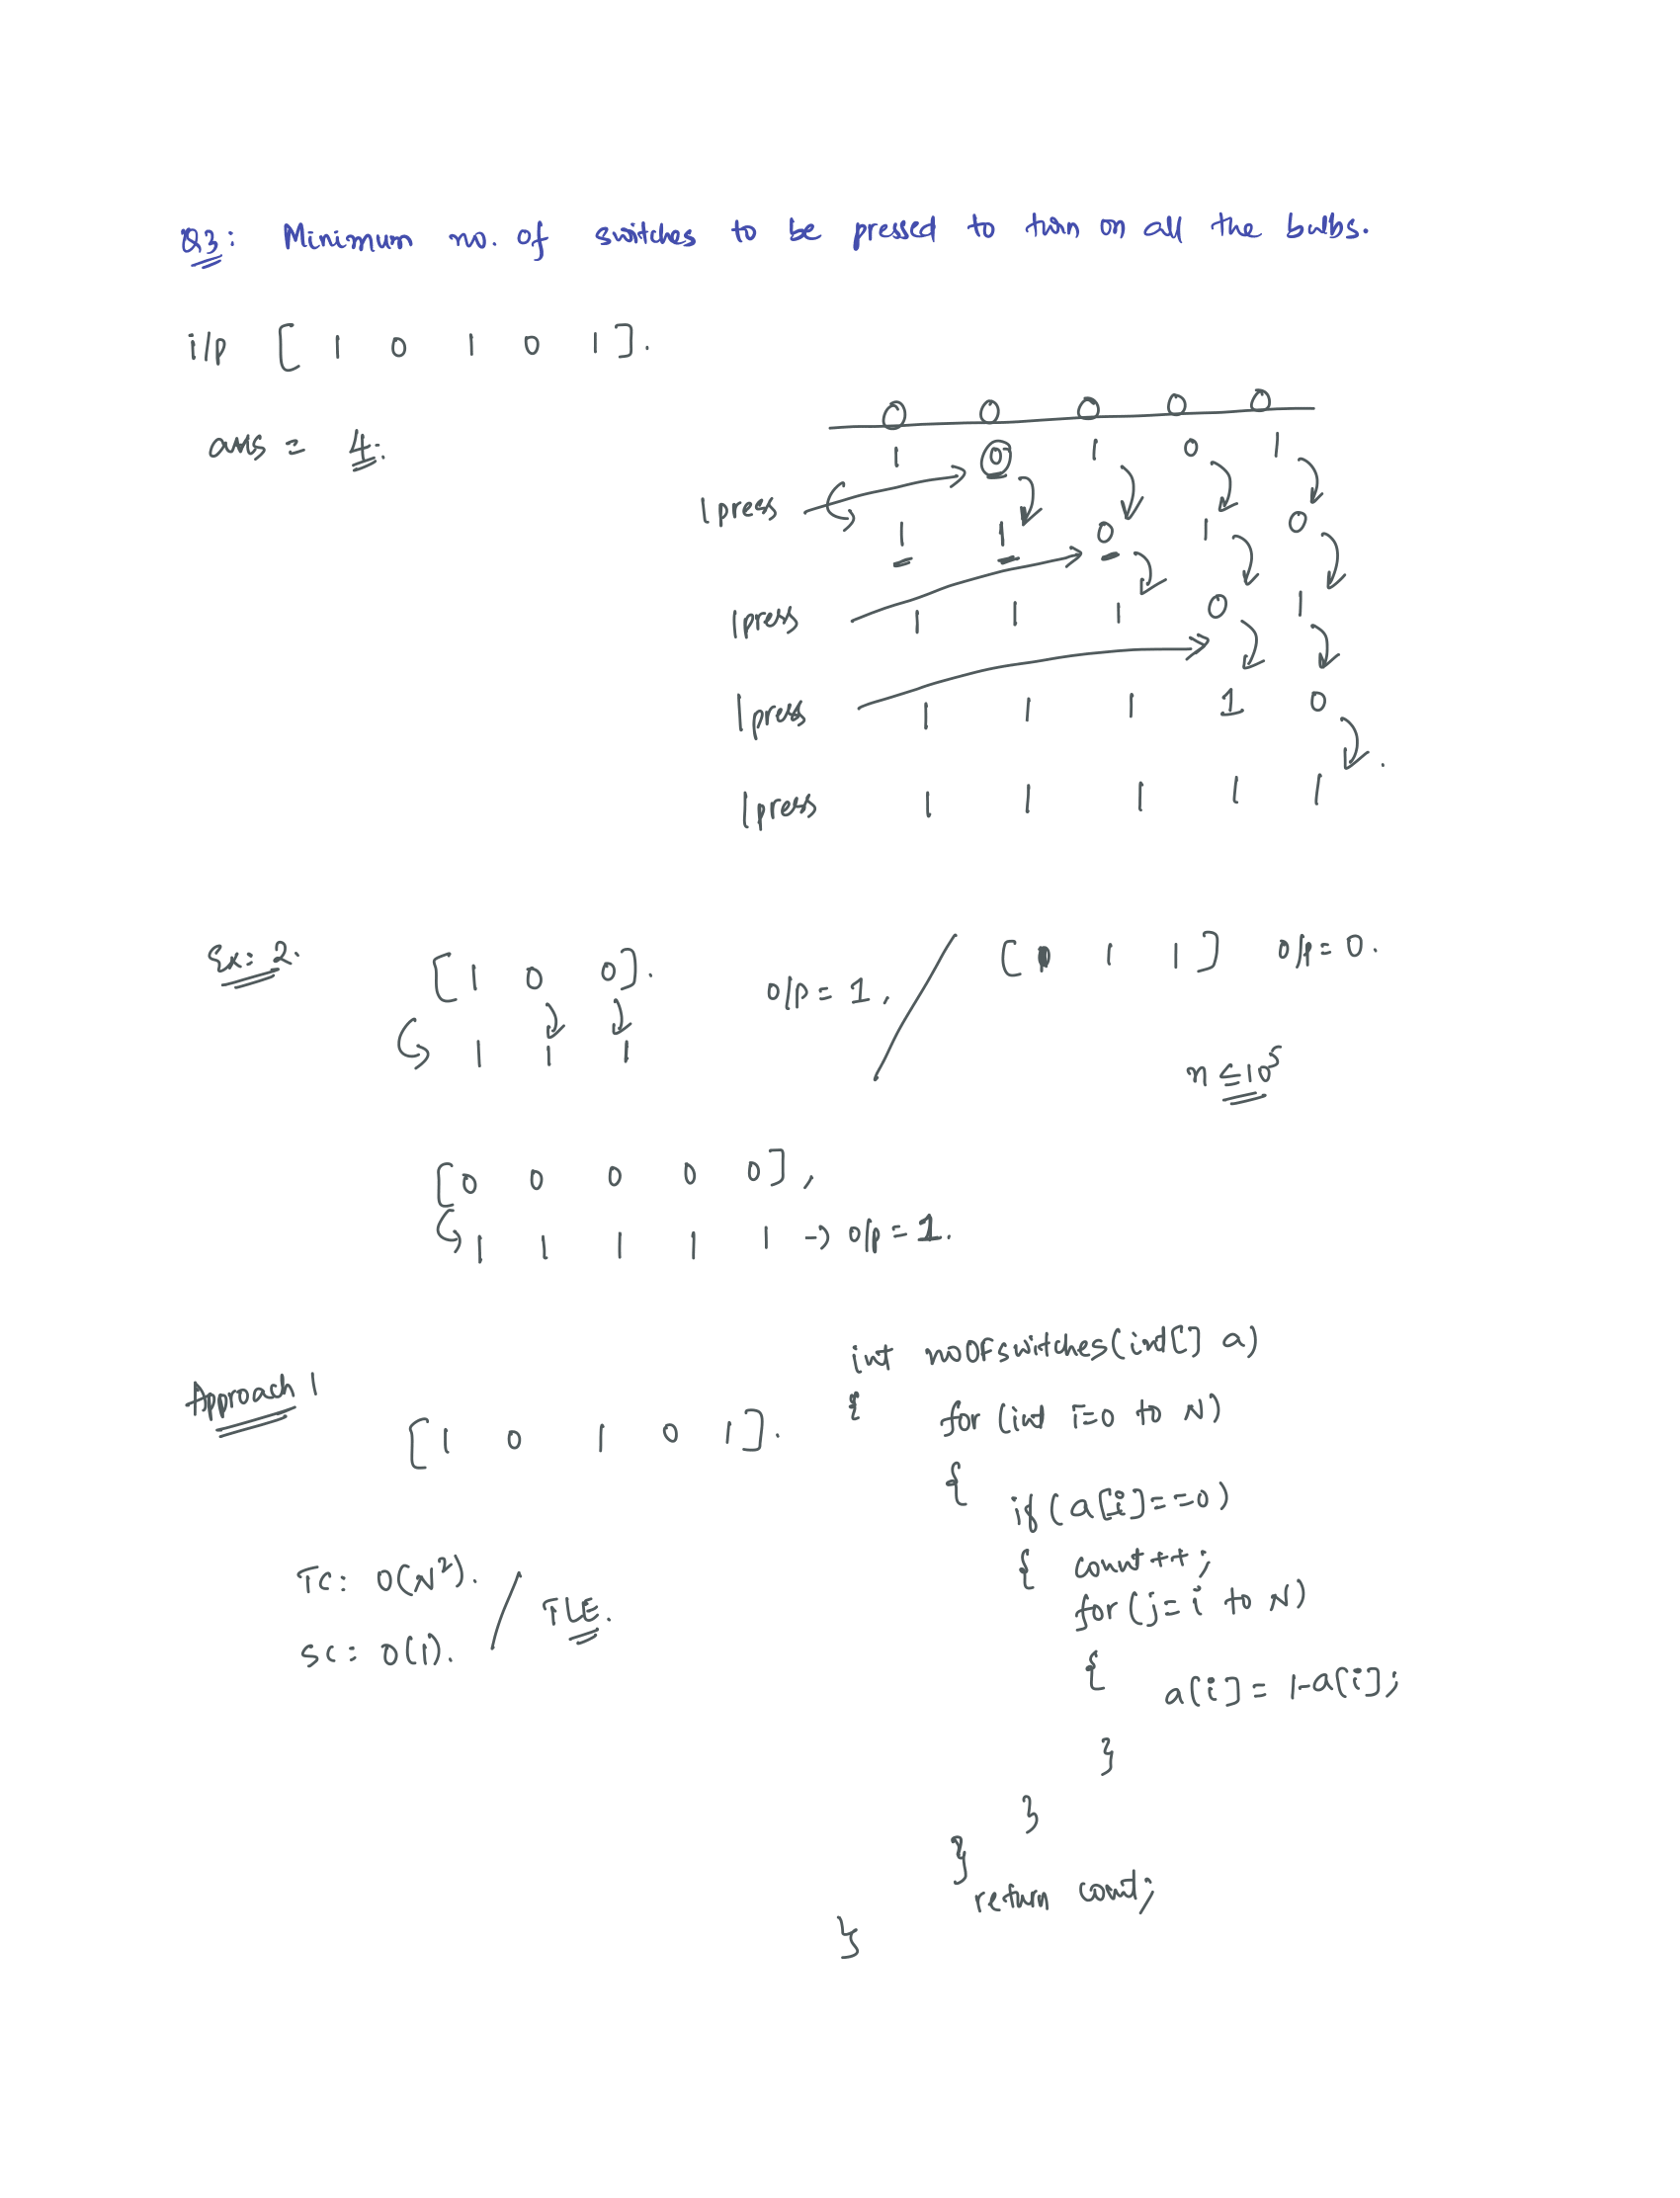 Q3: Minimum no. of switches to be pressed to turn on all the bulbs.
i/p [ 1 0 1 0 1 ].
ans = 4.
0 0 0 0 0
1 0 1 0 1
1 press
1 1 0 1 0
1 press 1 1 1 0 1
1 press 1 1 1 1 0
1 press 1 1 1 1 1
Ex: 2. [ 1 0 0 ]. o/p = 1, / [ 1 1 ] o/p = 0.
1 1 1
n ≤ 10^5
[ 0 0 0 0 0 ],
1 1 1 1 1 → o/p = 1.
Approach 1
[ 1 0 1 0 1 ].
TC: O(N^2). / TLE.
SC: O(1).
int noOfswitches(int[] a)
{
for (int i=0 to N)
{
if (a[i]==0)
{ count++;
for (j=i to N)
{
a[i] = 1-a[i];
}
}
}
return count;
}